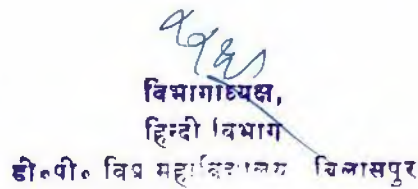 विभागाध्यक्ष,
हिन्दी विभाग
डी०पी० विप्र महाविद्यालय बिलासपुर